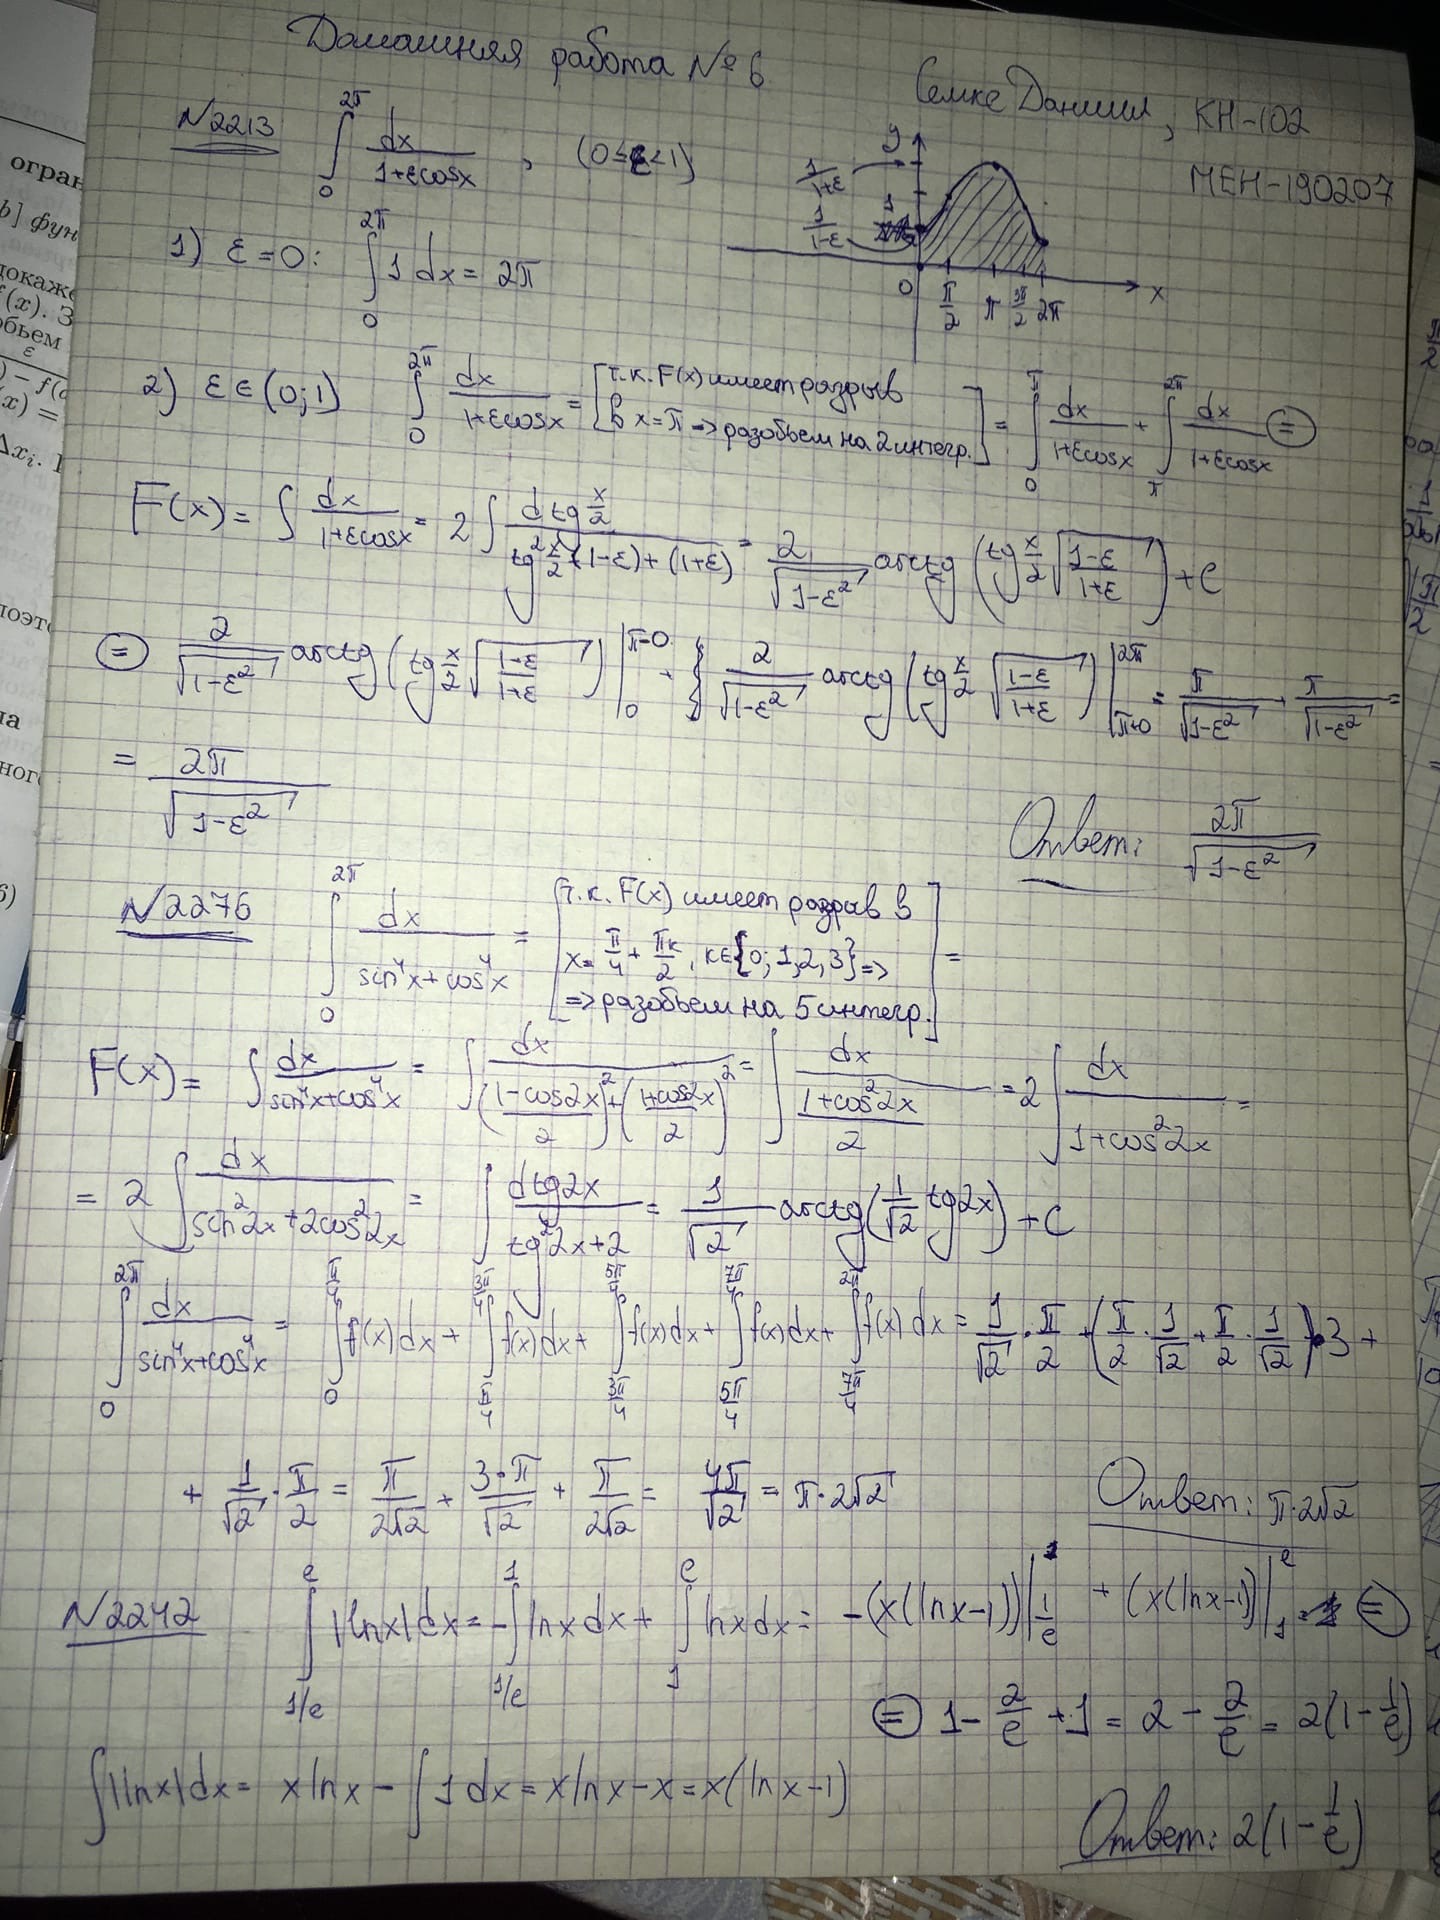 Домашняя работа № 6
Семке Даниил, КН-102
МЕН-190207
№2213 ∫_0^{2π} dx/(1+εcosx), (0≤ε<1)
y
1/(1+ε)
1
1/(1-ε)
0 π/2 π 3π/2 2π x
1) ε=0: ∫_0^{2π} 1 dx = 2π
2) ε∈(0;1) ∫_0^{2π} dx/(1+εcosx) = [т.к. F(x) имеет разрыв в x=π => разобьем на 2 интегр.] = ∫_0^π dx/(1+εcosx) + ∫_π^{2π} dx/(1+εcosx) (=)
F(x) = ∫ dx/(1+εcosx) = 2∫ dtg x/2 / (tg² x/2 · (1-ε) + (1+ε)) = 2/√(1-ε²) arctg (tg x/2 √((1-ε)/(1+ε))) + C
(=) 2/√(1-ε²) arctg (tg x/2 √((1-ε)/(1+ε))) |_0^{π-0} + 2/√(1-ε²) arctg (tg x/2 √((1-ε)/(1+ε))) |_{π+0}^{2π} = π/√(1-ε²) + π/√(1-ε²) =
= 2π/√(1-ε²)
Ответ: 2π/√(1-ε²)
№2276 ∫_0^{2π} dx/(sin⁴x+cos⁴x) = [т.к. F(x) имеет разрыв в x = π/4 + πк/2, к∈{0;1,2,3} => => разобьем на 5 интегр.] =
F(x) = ∫ dx/(sin⁴x+cos⁴x) = ∫ dx/(((1-cos2x)/2)² + ((1+cos2x)/2)²) = ∫ dx/((1+cos²2x)/2) = 2∫ dx/(1+cos²2x) =
= 2∫ dx/(sin²2x+2cos²2x) = ∫ dtg2x/(tg²2x+2) = 1/√2 arctg(1/√2 tg2x) + C
∫_0^{2π} dx/(sin⁴x+cos⁴x) = ∫_0^{π/4} f(x)dx + ∫_{π/4}^{3π/4} f(x)dx + ∫_{3π/4}^{5π/4} f(x)dx + ∫_{5π/4}^{7π/4} f(x)dx + ∫_{7π/4}^{2π} f(x)dx = 1/√2 · π/2 + (π/2 · 1/√2 + π/2 · 1/√2)·3 +
+ 1/√2 · π/2 = π/(2√2) + 3·π/√2 + π/(2√2) = 4π/√2 = π·2√2
Ответ: π·2√2
№2242 ∫_{1/e}^{e} |lnx|dx = -∫_{1/e}^{1} lnx dx + ∫_1^e lnx dx = -(x(lnx-1))|_{1/e}^{1} + (x(lnx-1))|_1^e = (=)
(=) 1 - 2/e + 1 = 2 - 2/e = 2(1 - 1/e)
∫|lnx|dx = xlnx - ∫1dx = xlnx-x = x(lnx-1)
Ответ: 2(1 - 1/e)